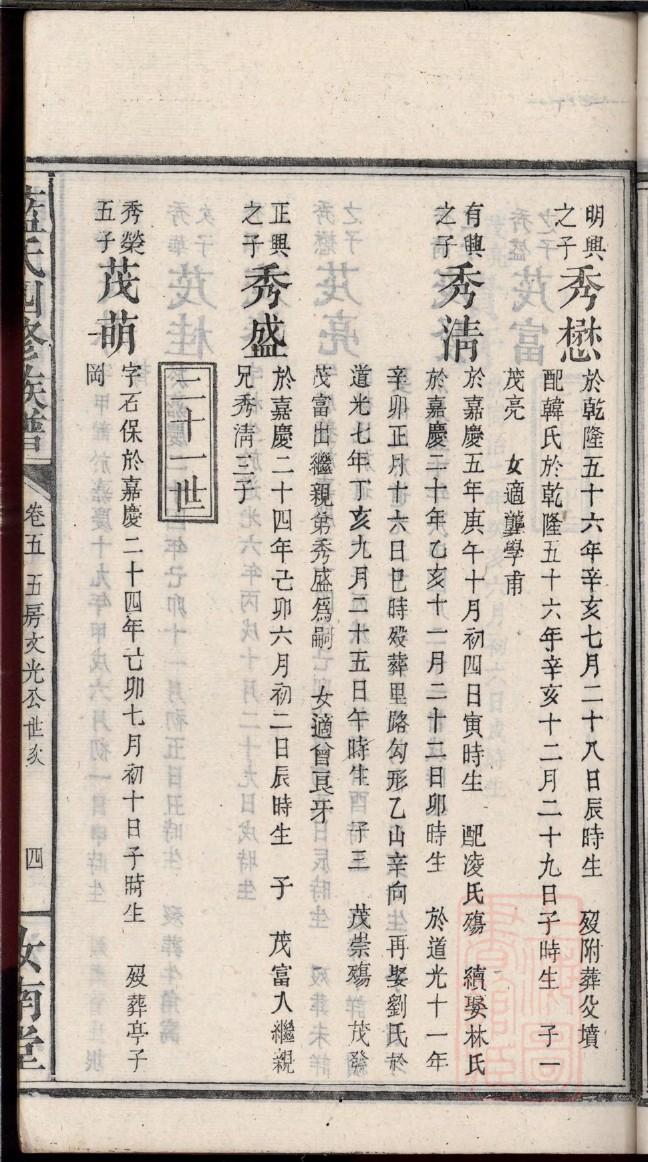 明興之子 秀懋 於乾隆五十六年辛亥七月二十八日辰時生 歿附葬父墳
配韓氏於乾隆五十六年辛亥十二月二十九日子時生 子一
茂亮 女適龔學甫
有興之子 秀清 於嘉慶五年庚午十月初四日寅時生 配凌氏殤 續娶林氏
於嘉慶二十年乙亥十一月二十三日卯時生 於道光十一年
辛卯正月十六日巳時歿葬里路勾形乙山辛向 再娶劉氏於
道光七年丁亥九月二十五日午時生 子三 茂崇殤 茂發
茂富出繼親弟秀盛爲嗣 女適曾良牙
正興之子 秀盛 於嘉慶二十四年己卯六月初二日辰時生 子 茂富入繼親
兄秀清三子
二十一世
秀榮五子 茂萌 字石保於嘉慶二十四年己卯七月初十日子時生 歿葬亭子
岡
藍氏四修族譜 卷五 五房文光公世系 四 汝南堂